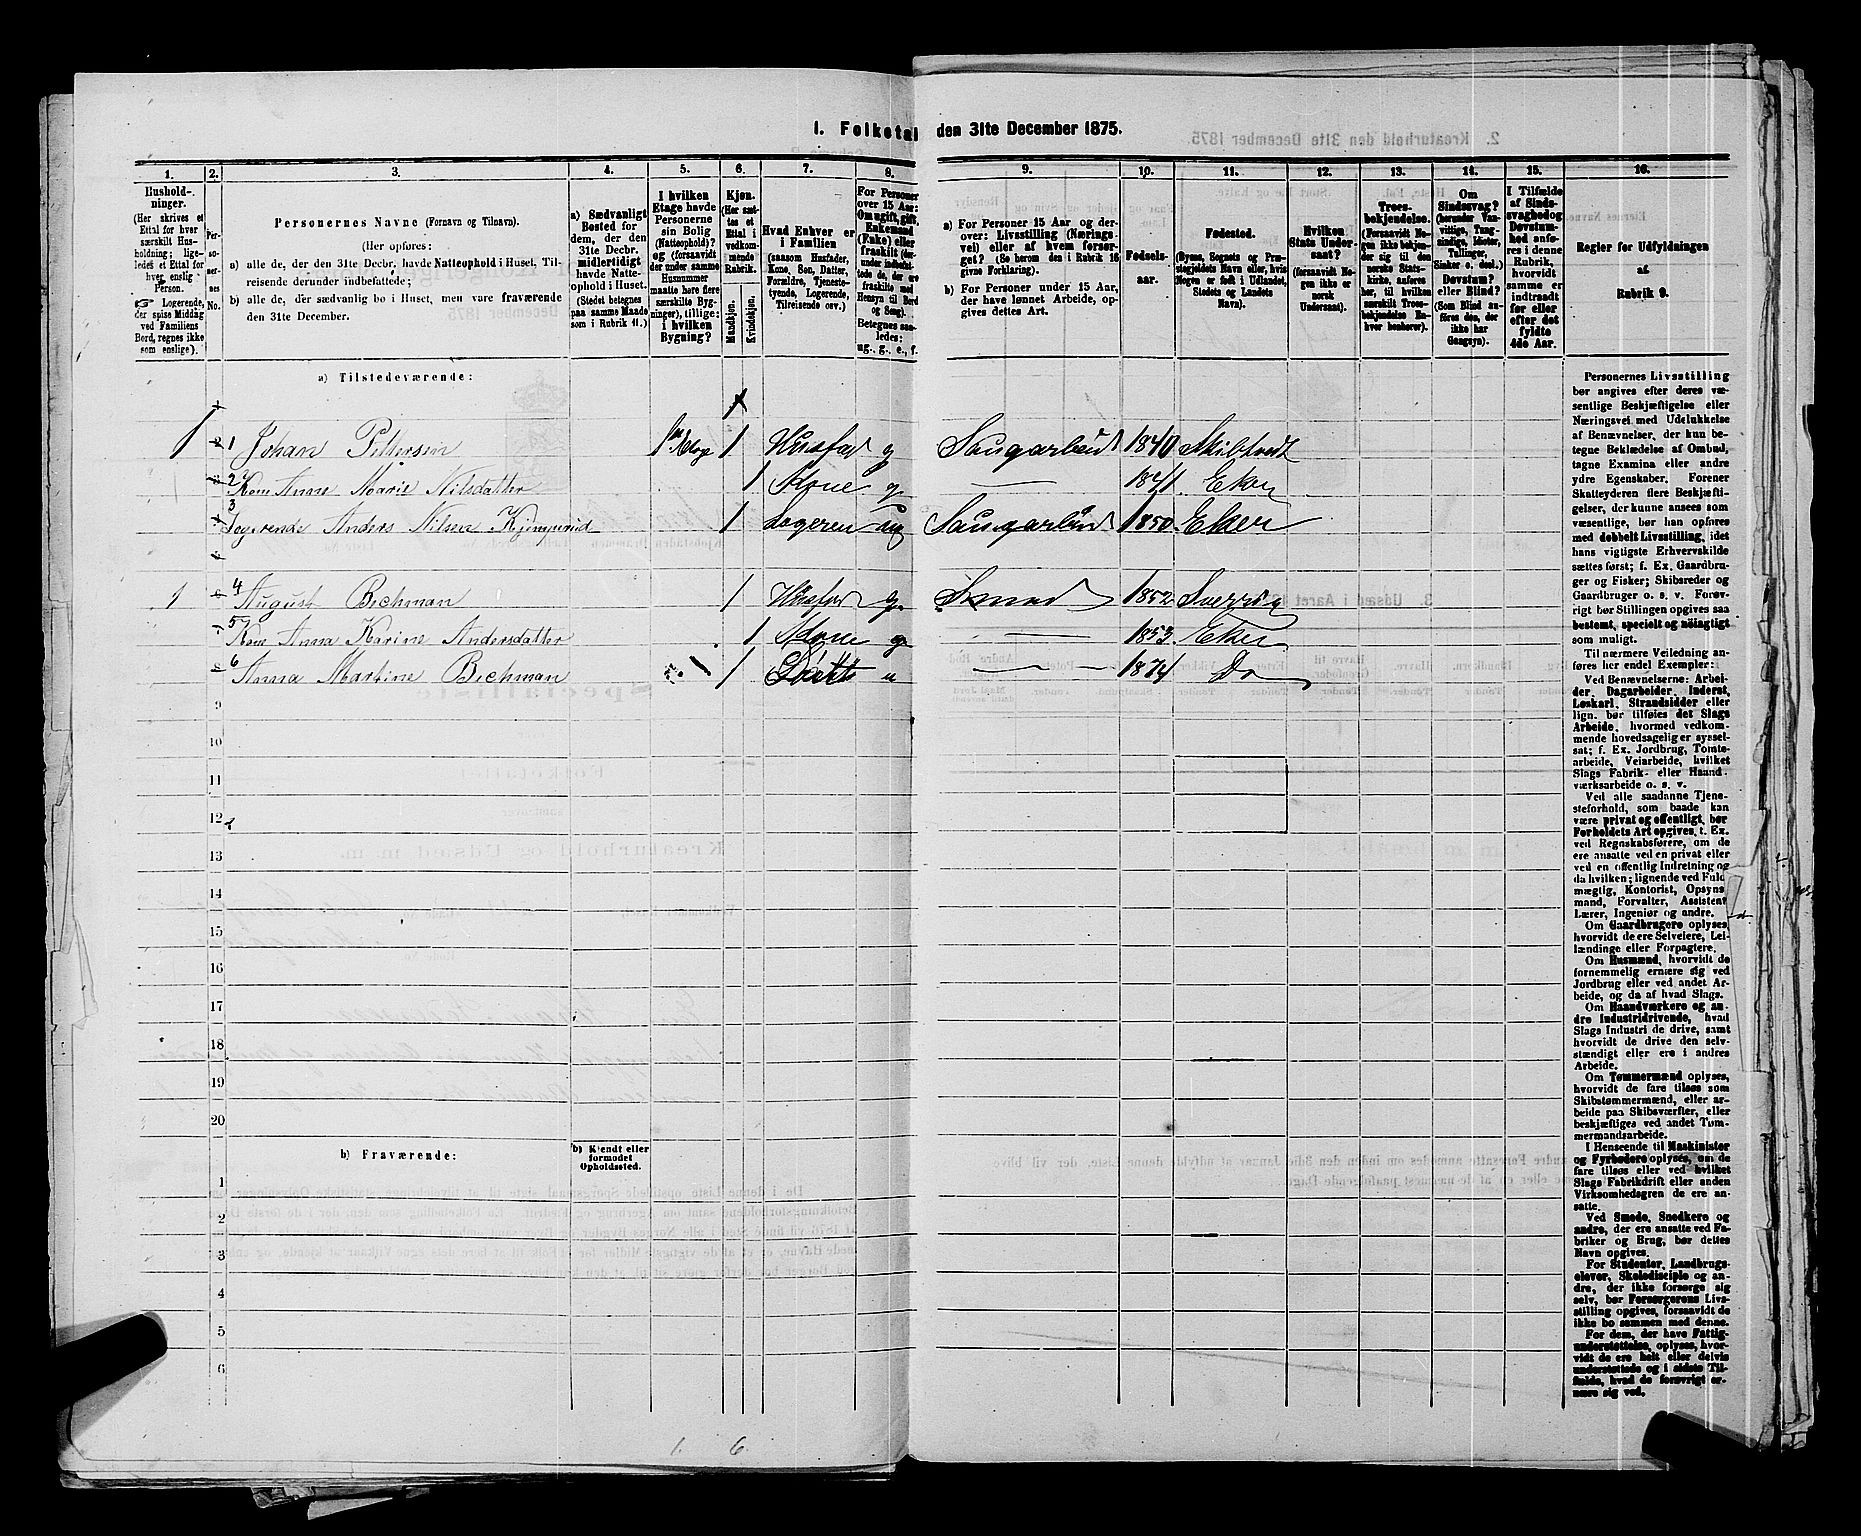 1. Folketal den 31te December 1875.
1. 2. 3. 4. 5. 6. 7. 8. 9. 10. 11. 12. 13. 14. 15. 16.
Hushold-
ninger.
(Her skrives et
Ettal for hver
særskilt Hus-
holdning; lige-
ledes et Ettal for
hver enslig
Person.
Logerende,
der spise Middag
ved Familiens
Bord, regnes ikke
som enslige).
Per-
so-
ner-
nes
No.
Personernes Navne (Fornavn og Tilnavn).
(Her opføres:
a) alle de, der den 31te Decbr. havde Natteophold i Huset, Til-
reisende derunder indbefattede;
b) alle de, der sædvanlig bo i Huset, men vare fraværende
den 31te December.
a) Sædvanligt
Bosted for
dem, der den
31te Decbr.
midlertidigt
havde Natte-
ophold i Huset.
(Stedet betegnes
paa samme Maade
som i Rubrik 11.)
I hvilken
Etage havde
Personerne
sin Bolig
(Natteophold)?
og (forsaavidt
der under samme
Husnummer
maatte høre flere
særskilte Byg-
ninger), tillige:
i hvilken
Bygning?
Kjøn.
(Her sæt-
tes et
Ettal i
vedkom-
mende
Rubrik.
Mandkjøn.
Kvindekjøn.
Hvad Enhver er
i Familien
(saasom Husfader,
Kone, Søn, Datter,
Forældre, Tjeneste-
tyende, Logerende,
Tilreisende osv.)
For Personer
over 15 Aar:
Om ugift, gift,
Enkemand
(Enke) eller
fraskilt
Betegnes saa-
ledes:
ug., g., e., f.
a) For Personer 15 Aar og der-
over: Livsstilling (Nærings-
vei) eller af hvem forsør-
get? (Se herom den i Rubrik 16
givne Forklaring).
b) For Personer under 15 Aar,
der have lønnet Arbeide, op-
gives dettes Art.
Fødsels-
aar.
Fødested.
(Byens, Sognets og Præs-
tegjeldets Navn eller, hvis
Nogen er født i Udlandet,
Stedets og Landets
Navn).
Hvilken
Stats Under-
saat?
(forsaavidt No-
gen ikke er
norsk
Undersaat).
Troes-
bekjendelse.
(Forsaavidt No-
gen ikke bekjen-
der sig til den
norske Stats-
kirke, anføres
her, til hvilken
særskilt Troes-
bekjendelse En-
hver henhører).
Om
Sindssvag?
(herunder Van-
vittige, Tung-
sindige, Idioter,
Tullinger,
Sinker o. desl.)
Døvstum?
eller Blind?
(Som Blind an-
føres den, der
ikke har
Gangsyn).
I Tilfælde
af Sinds-
svaghed og
Døvstum-
hed anfø-
res i denne
Rubrik,
hvorvidt
samme er
indtraadt
før eller
efter det
fyldte
4de Aar.
Regler for Udfyldningen
af
Rubrik 9.
a) Tilstedeværende:
1 1 Johan Pettersen 1 Husfad g Saugarbeid 1840 Skibtvedt
2 Kone Anne Marie Nilsdatter 1 Kone g — 1841 Eker
3 Logerende Anders Nilsen 1 Logeren ug Saugarbeid 1850 Eker
1 4 August Bichman 1 Husfad g Smed 1852 Sverrig
5 Kone Anna Karine Andersdatter 1 Kone g — 1853 Eker
6 Anna Martine Bichman 1 u — 1874 Do
9
10
11
12
13
14
15
16
17
18
19
20
b) Fraværende:
b) Kjendt eller
formodet
Opholdssted.
1
2
3
4
5
6
1. 6
Personernes Livsstilling
bør angives efter deres væ-
sentlige Beskjæftigelse eller
Næringsvei med Udelukkelse
af Benævnelser, der kun be-
tegne Beklædelse af Ombud,
tagne Examina eller andre
ydre Egenskaber. Forener
Skatteyderen flere Beskjæfti-
gelser, der kunne ansees som
væsentlige, bør han opføres
med dobbelt Livsstilling, idet
hans vigtigste Erhvervskilde
sættes først; f. Ex. Gaardbru-
ger og Fisker; Skibsreder og
Gaardbruger o. s. v. Forøv-
rigt bør Stillingen opgives saa
bestemt, specielt og nøiagtigt
som muligt.
Til nærmere Veiledning an-
føres her endel Exempler:
Ved Benævnelserne: Arbei-
der, Dagarbeider, Inderst,
Løskarl, Strandsidder eller
lign. bør tilføies det Slags
Arbeide, hvormed vedkom-
mende hovedsagelig er syssel-
sat; f. Ex. Jordbrug, Tomte-
arbeide, Veiarbeide, hvilket
Slags Fabrik- eller Haand-
værksarbeide o. s. v.
Ved alle saadanne Tjene-
steforhold, som baade kan
være privat og offentligt, bør
Forholdets Art opgives, t. Ex.
ved Regnskabsførere, om de
ere ansatte ved en privat eller
ved en offentlig Indretning og
da hvilken; lignende ved Fuld-
mægtig, Kontorist, Opsyns-
mand, Forvalter, Assistent,
Lærer, Ingeniør og andre.
Om Gaardbrugere oplyses,
hvorvidt de ere Selveiere, Lei-
lændinge eller Forpagtere.
Om Husmænd, hvorvidt de
fornemmelig ernære sig ved
Jordbrug eller ved andet Ar-
beide, og da af hvad Slags.
Om Haandværkere og an-
dre Industridrivende, hvad
Slags Industri de drive, samt
hvorvidt de drive den selv-
stændigt eller ere i andres
Arbeide.
Om Tømmermænd oplyses,
hvorvidt de fare tilsøs som
Skibstømmermænd, eller ar-
beide paa Skibsværfter, eller
beskjæftiges ved andet Tøm-
mermandsarbeide.
I Henseende til Maskinister
og Fyrbødere oplyses, om de
fare tilsøs eller ved hvilket
Slags Fabrikdrift eller anden
Virksomhedsgren de ere an-
satte.
Ved Smede, Snedkere og
andre, der ere ansatte ved Fa-
briker og Brug, bør dettes
Navn opgives.
For Studenter, Landbrugs-
elever, Skoledisciple og an-
dre, der ikke forsørge sig
selv, bør Forsørgerens Livs-
stilling opgives, forsaavidt de
ikke bo sammen med denne.
For dem, der have Fattig-
understøttelse, oplyses, hvor-
vidt de ere helt eller delvis
understøttede og i sidste Til-
fælde, hvad de forøvrigt er-
nære sig ved.